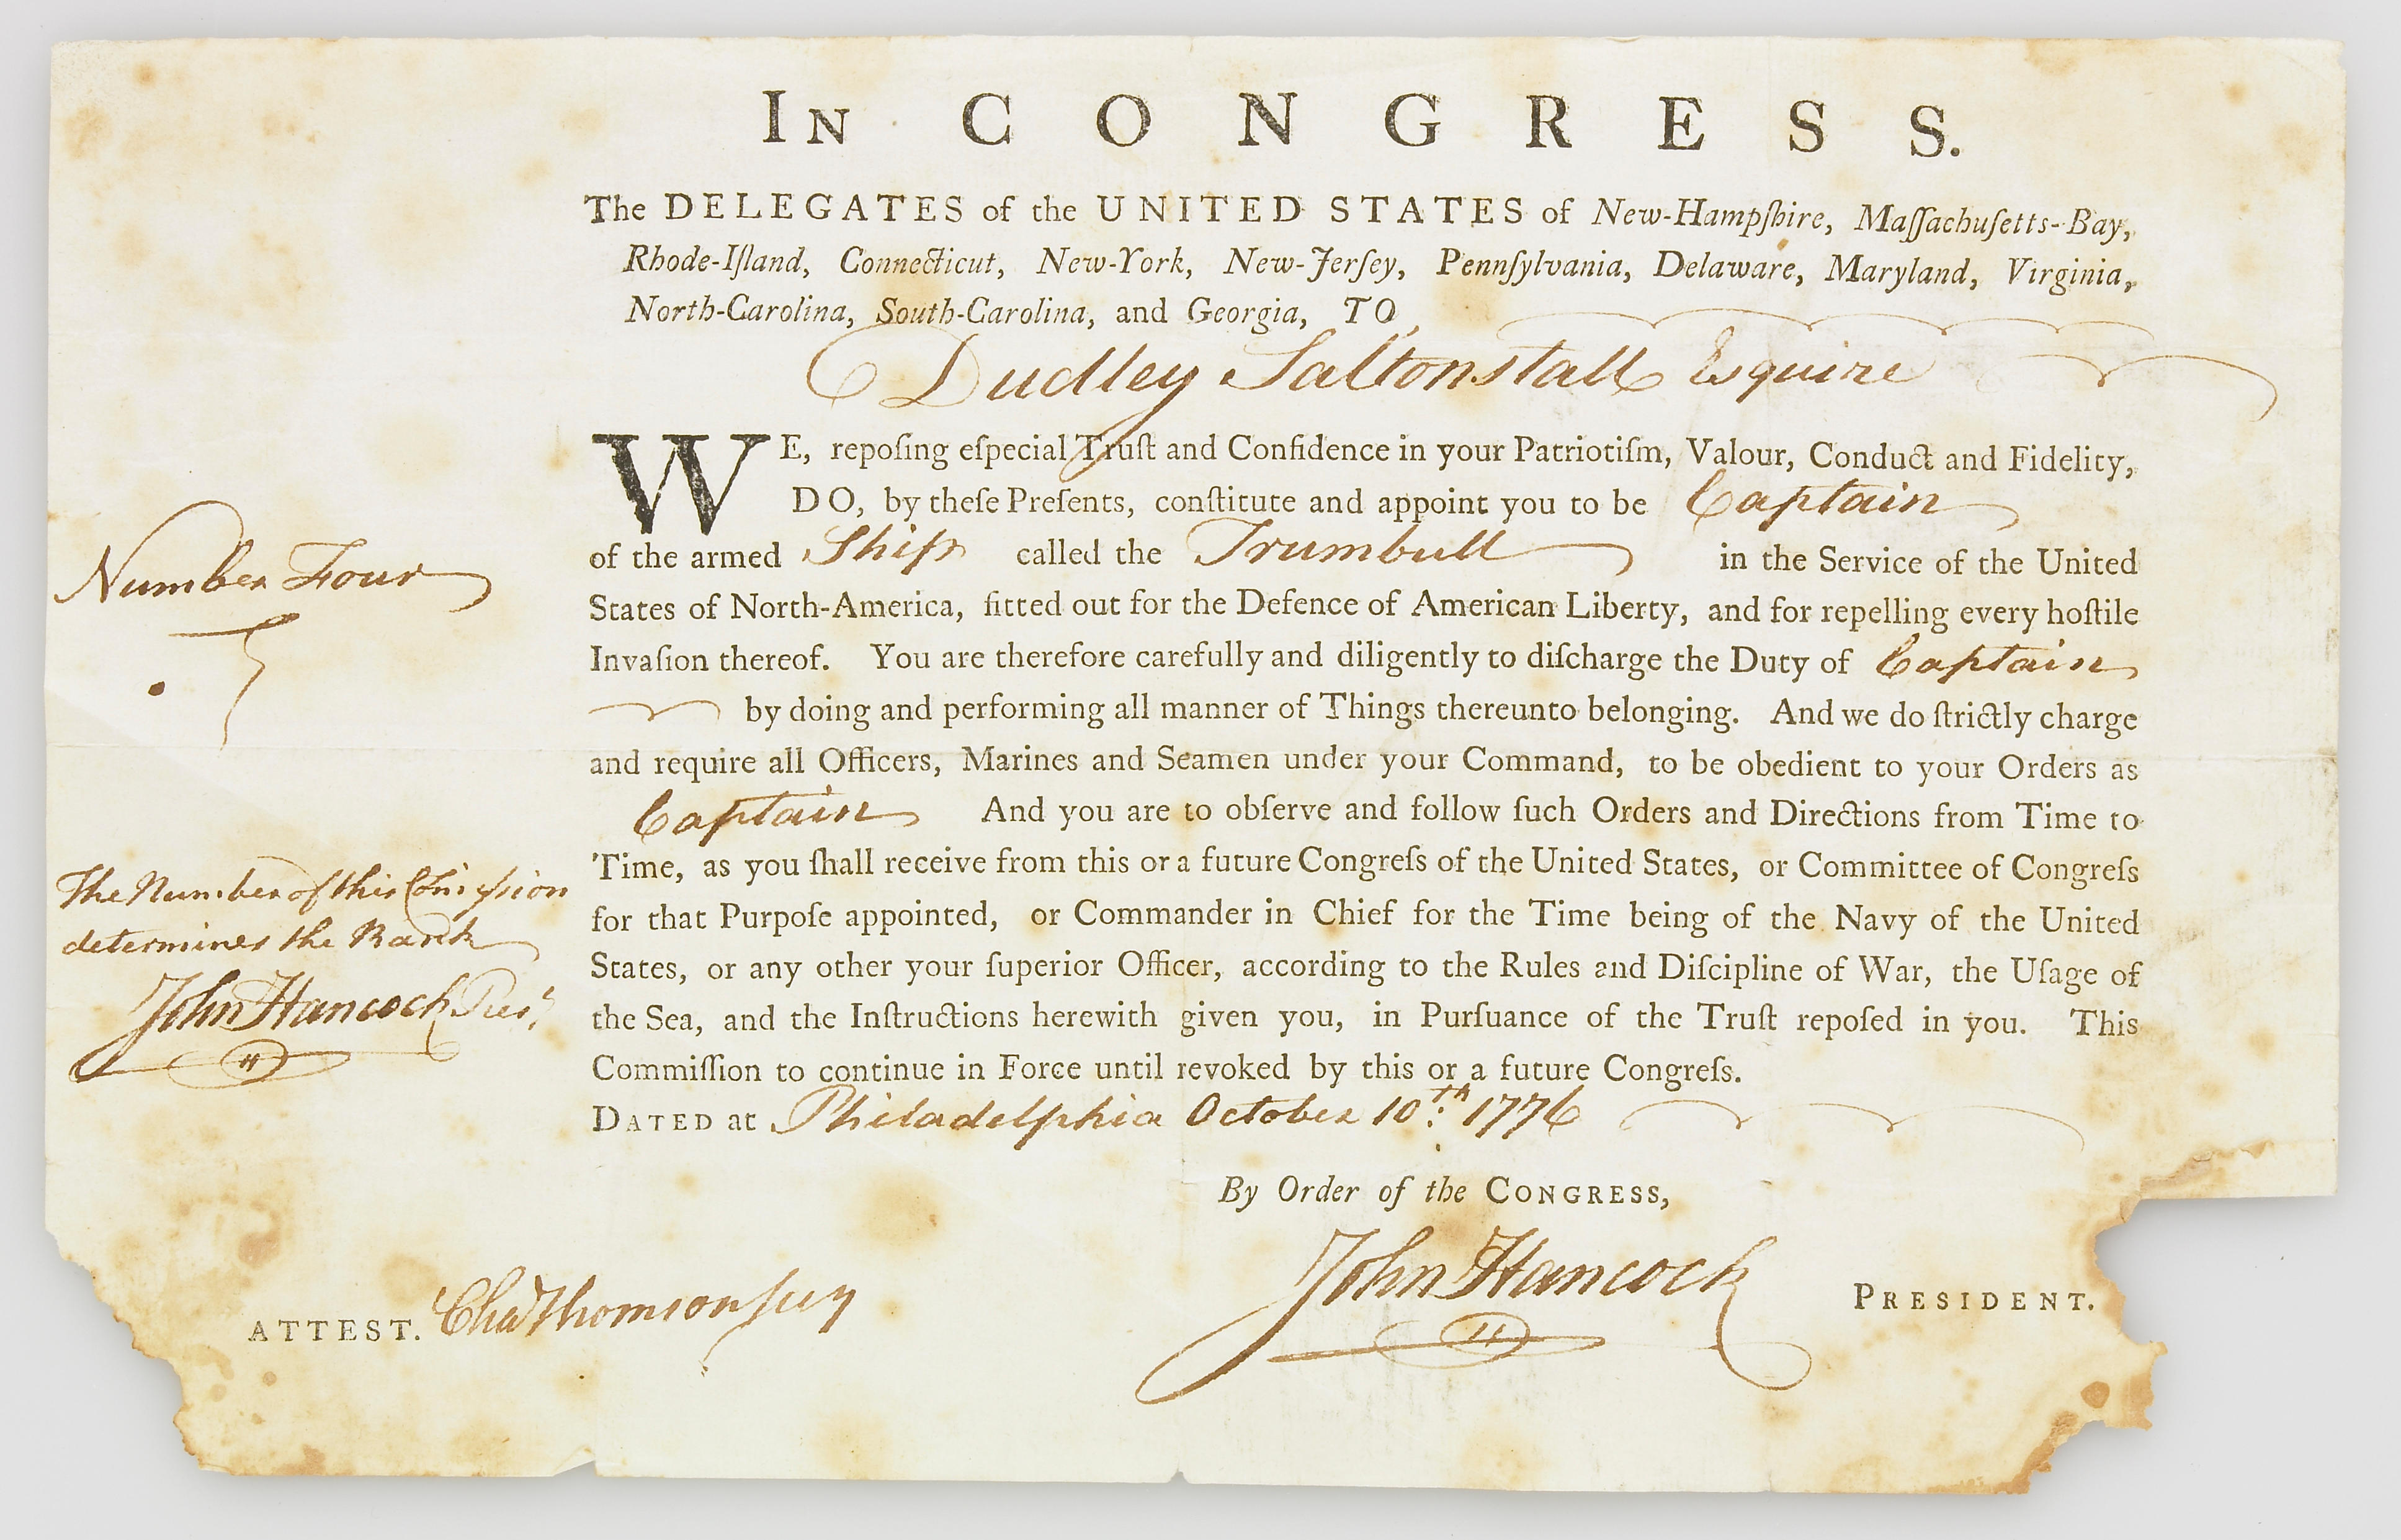 IN CONGRESS.
The DELEGATES of the UNITED STATES of New-Hampſhire, Maſſachuſetts-Bay,
Rhode-Iſland, Connecticut, New-York, New-Jerſey, Pennſylvania, Delaware, Maryland, Virginia,
North-Carolina, South-Carolina, and Georgia, TO
Dudley Saltonstall Esquire
WE, repoſing eſpecial Truſt and Confidence in your Patriotiſm, Valour, Conduct and Fidelity,
DO, by theſe Preſents, conſtitute and appoint you to be Captain
of the armed Ship called the Trumbull in the Service of the United
States of North-America, fitted out for the Defence of American Liberty, and for repelling every hoſtile
Invaſion thereof. You are therefore carefully and diligently to diſcharge the Duty of Captain
by doing and performing all manner of Things thereunto belonging. And we do ſtrictly charge
and require all Officers, Marines and Seamen under your Command, to be obedient to your Orders as
Captain And you are to obſerve and follow ſuch Orders and Directions from Time to
Time, as you ſhall receive from this or a future Congreſs of the United States, or Committee of Congreſs
for that Purpoſe appointed, or Commander in Chief for the Time being of the Navy of the United
States, or any other your ſuperior Officer, according to the Rules and Diſcipline of War, the Uſage of
the Sea, and the Inſtructions herewith given you, in Purſuance of the Truſt repoſed in you. This
Commiſſion to continue in Force until revoked by this or a future Congreſs.
DATED at Philadelphia October 10th 1776
Number Four
The Number of this Comiſsion
determines the Rank
John Hancock Presᵗ
By Order of the CONGRESS,
John Hancock PRESIDENT.
ATTEST. Chaˢ Thomson ſecy